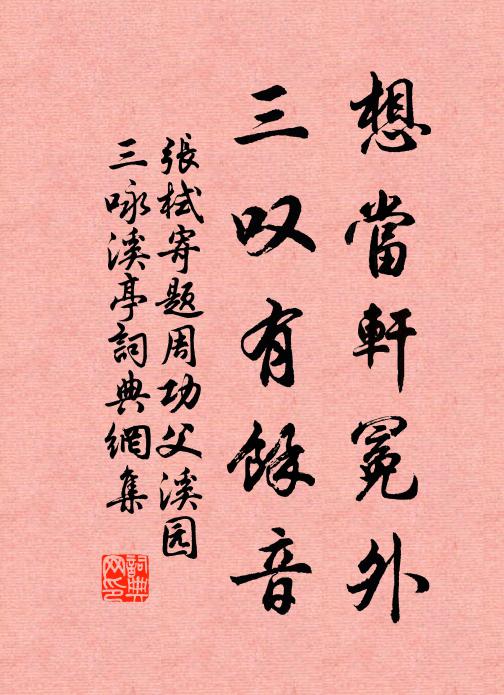 想當軒冕外
三叹有餘音
張栻寄题周功父溪园
三咏溪亭詞典網集
詞典网印